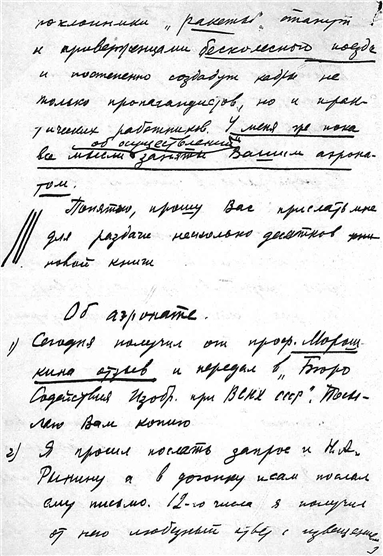 поклонники "ракеты" станут
и приверженцами бесколесного поезда
и постепенно создадут кадры не
только пропагандистов, но и прак-
тических работников. У меня же пока
все мысли об осуществлении заняты Вашим аэрона-
том.
Понятно, прошу Вас прислать мне
для раздачи несколько десятков
новой книги
Об аэронате.
1) Сегодня получил от проф. Морош-
кина отзыв и передал в "Бюро
Содействия Изобр. при ВСНХ СССР". Посы-
лаю Вам копию
2) Я просил послать запрос и Н.А.
Рынину а в догонку и сам послал
ему письмо. 12-го числа я получил
от него любезный ответ с извещением